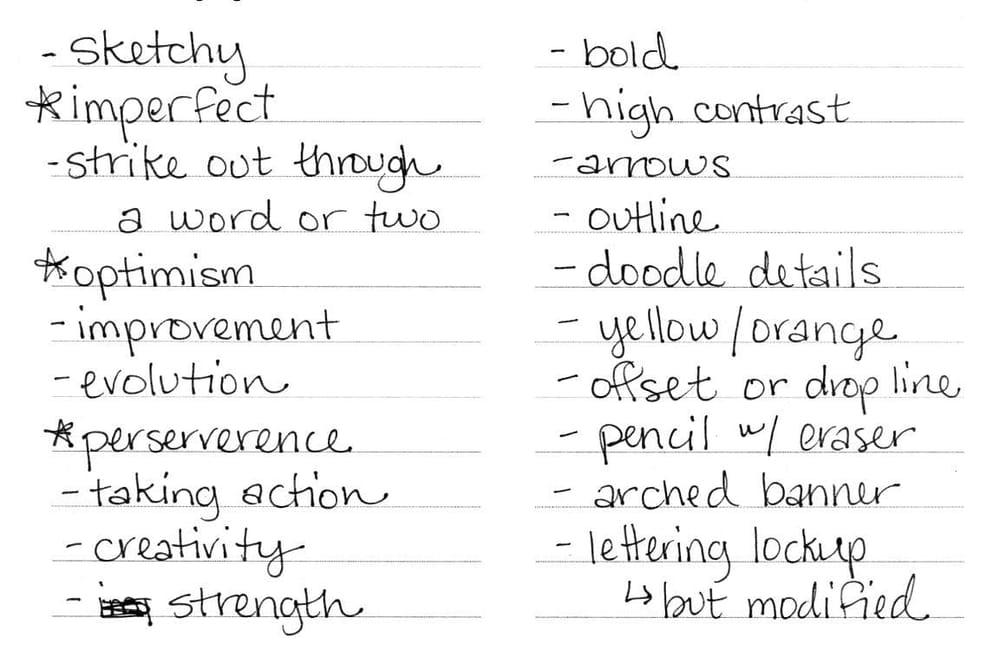 - sketchy
* imperfect
- strike out through
a word or two
* optimism
- improvement
- evolution
* perserverence
- taking action
- creativity
- strength
- bold
- high contrast
- arrows
- outline
- doodle details
- yellow/orange
- offset or drop line
- pencil w/ eraser
- arched banner
- lettering lockup
↳ but modified